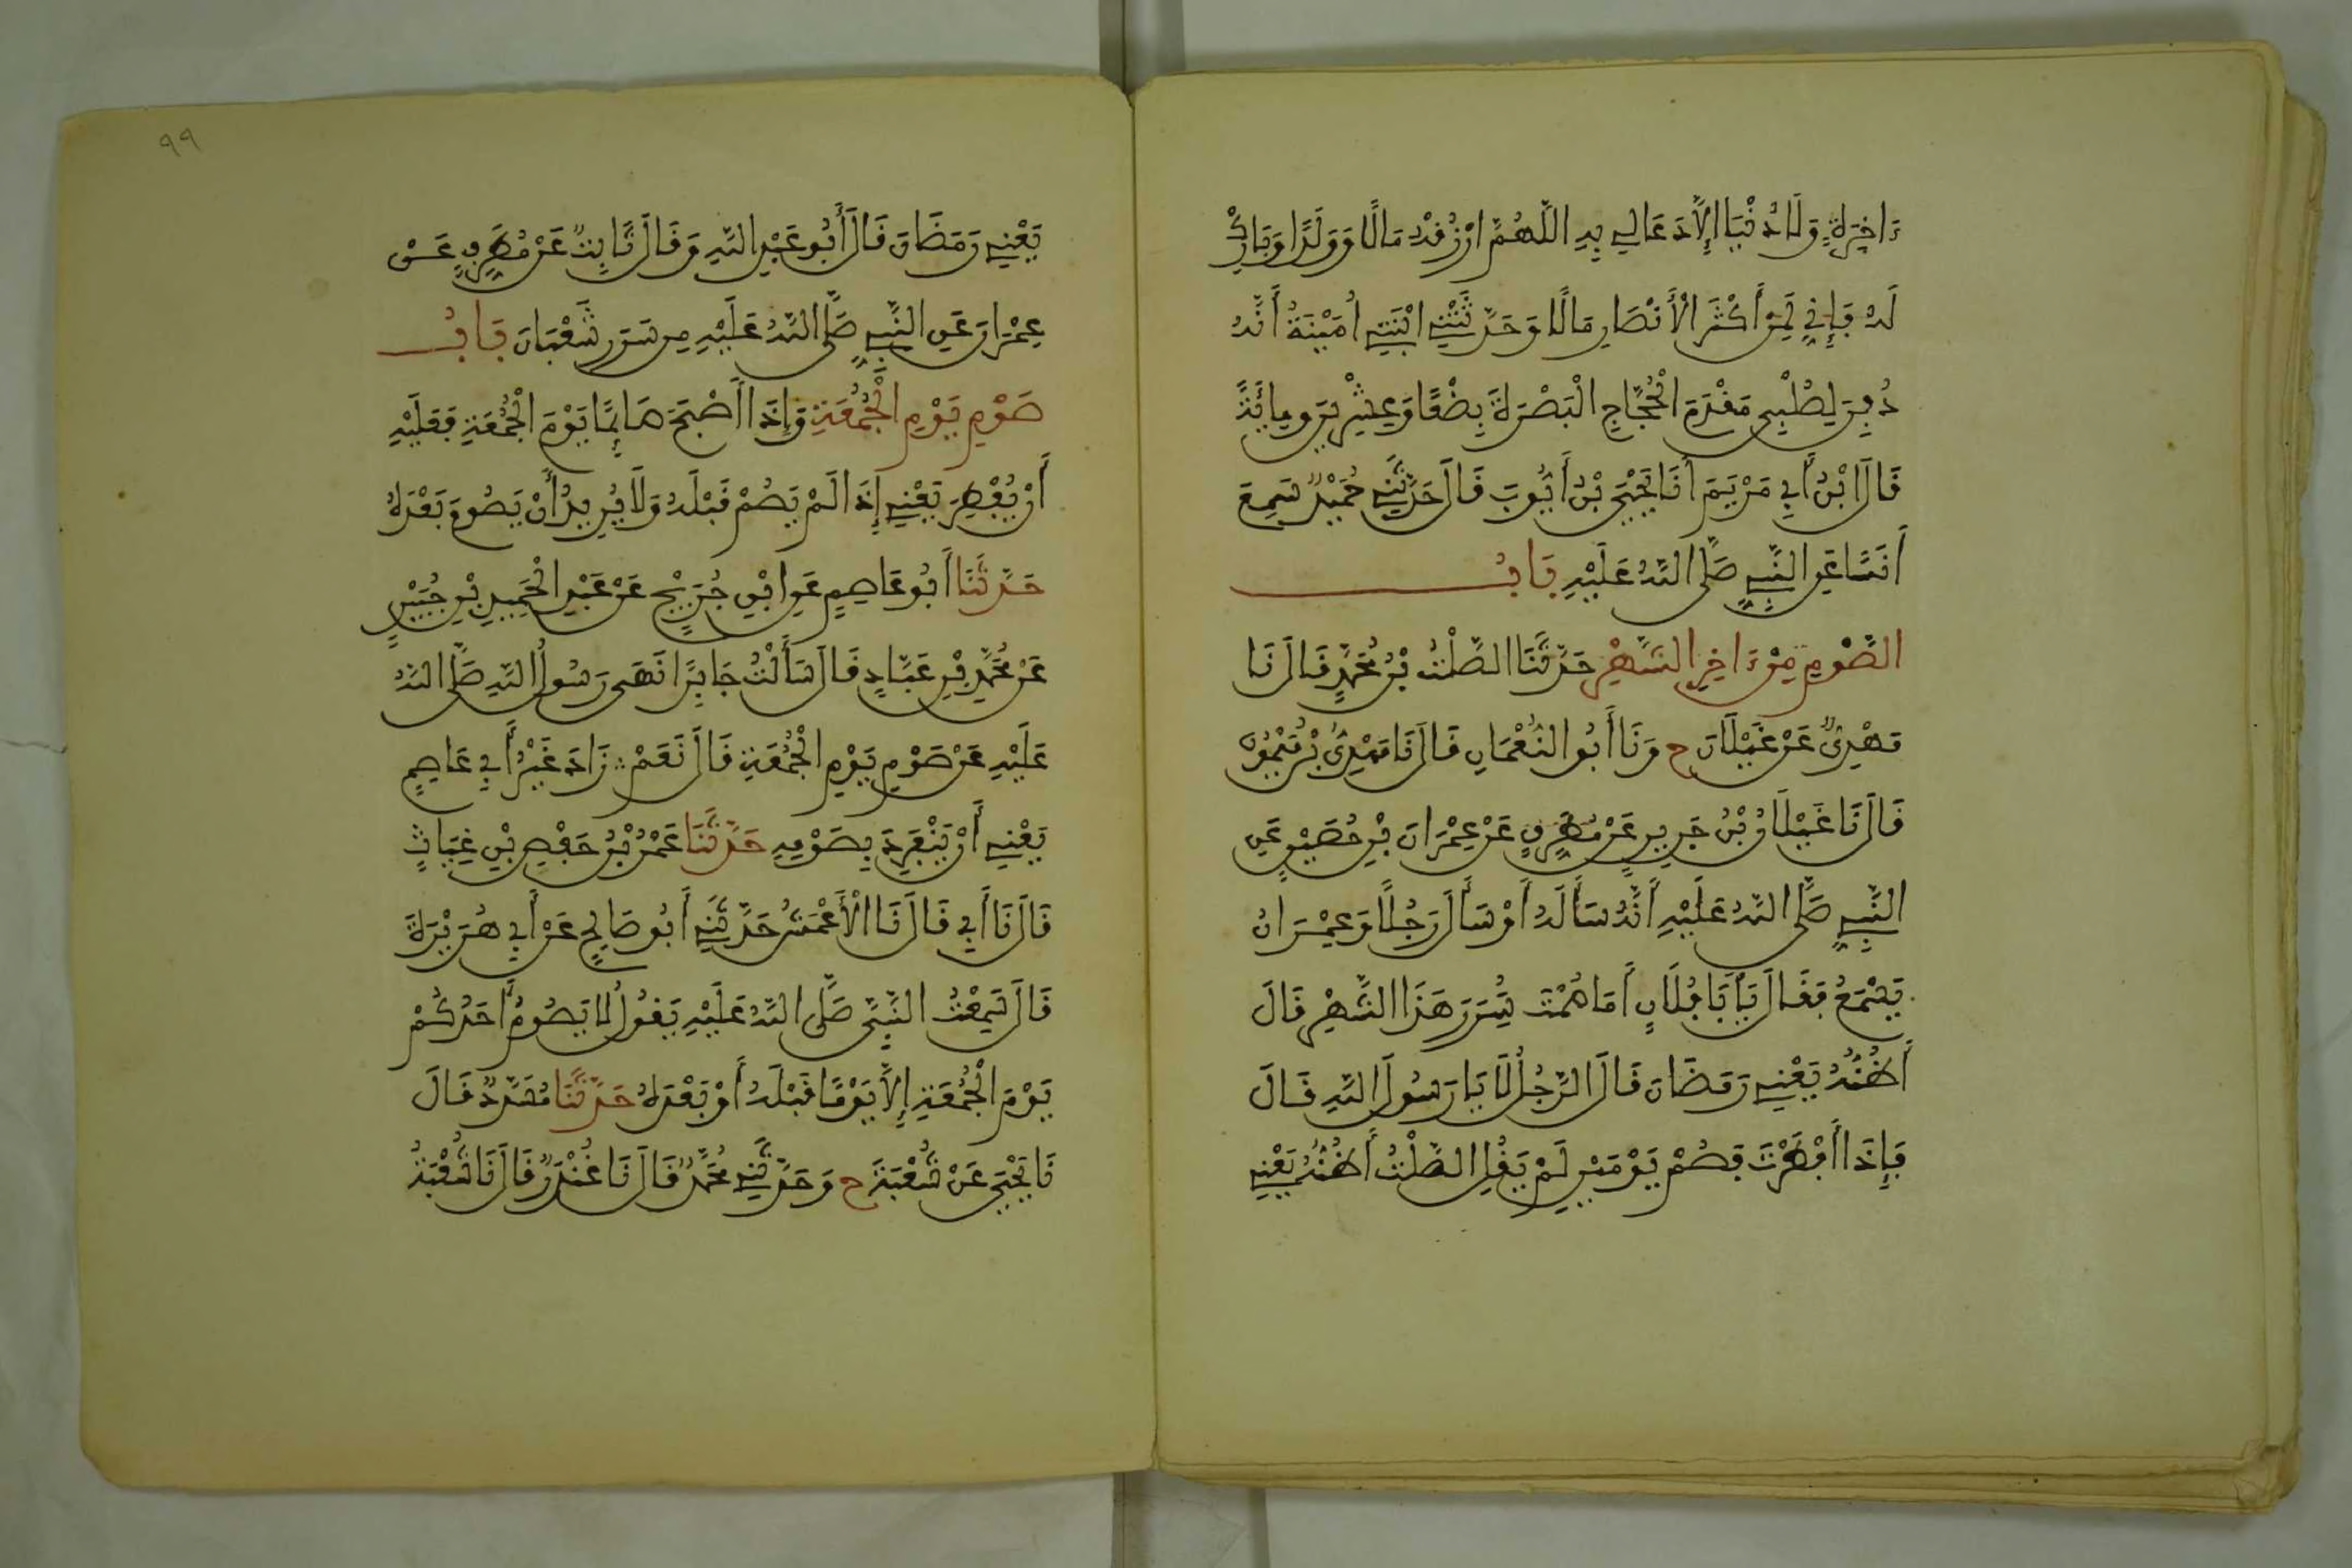 ءَاخِرَةٍ وَلَا دُنْيَا إِلَّا دَعَا لِي بِهِ اللَّهُمَّ ارْزُقْهُ مَالًا وَوَلَدًا وَبَارِكْ
لَهُ فَإِنِّي لَمِنْ أَكْثَرِ الْأَنْصَارِ مَالًا وَحَدَّثَتْنِي ابْنَتِي أُمَيْنَةُ أَنَّهُ
دُفِنَ لِصُلْبِي مَقْدَمَ الْحُجَّاجِ الْبَصْرَةَ بِضْعًا وَعِشْرِينَ وَمِائَةً
قَالَ ابْنُ أَبِي مَرْيَمَ أَنَا يَحْيَى بْنُ أَيُّوبَ قَالَ حَدَّثَنِي حُمَيْدٌ سَمِعَ
أَنَسًا عَنِ النَّبِيِّ صَلَّى اللَّهُ عَلَيْهِ بَابُ
الصَّوْمِ مِنْ ءَاخِرِ الشَّهْرِ حَدَّثَنَا الصَّلْتُ بْنُ مُحَمَّدٍ قَالَ نَا
مَهْدِيٌّ عَنْ غَيْلَانَ ح وَنَا أَبُو النُّعْمَانِ قَالَ نَا مَهْدِيُّ بْنُ مَيْمُونٍ
قَالَ نَا غَيْلَانُ بْنُ جَرِيرٍ عَنْ مُطَرِّفٍ عَنْ عِمْرَانَ بْنِ حُصَيْنٍ عَنِ
النَّبِيِّ صَلَّى اللَّهُ عَلَيْهِ أَنَّهُ سَأَلَهُ أَوْ سَأَلَ رَجُلًا وَعِمْرَانُ
يَسْمَعُ فَقَالَ يَا بَا فُلَانٍ أَمَا صُمْتَ سُرَرَ هَذَا الشَّهْرِ قَالَ
أَظُنُّهُ يَعْنِي رَمَضَانَ قَالَ الرَّجُلُ لَا يَا رَسُولَ اللَّهِ قَالَ
فَإِذَا أَفْطَرْتَ فَصُمْ يَوْمَيْنِ لَمْ يَقُلِ الصَّلْتُ أَظُنُّهُ يَعْنِي
٩٩
يَعْنِي رَمَضَانَ قَالَ أَبُو عَبْدِ اللَّهِ وَقَالَ ثَابِتٌ عَنْ مُطَرِّفٍ عَنْ
عِمْرَانَ عَنِ النَّبِيِّ صَلَّى اللَّهُ عَلَيْهِ مِن سَرَرِ شَعْبَانَ بَابُ
صَوْمِ يَوْمِ الْجُمُعَةِ وَإِذَا أَصْبَحَ صَائِمًا يَوْمَ الْجُمُعَةِ فَعَلَيْهِ
أَنْ يُفْطِرَ يَعْنِي إِذَا لَمْ يَصُمْ قَبْلَهُ وَلَا يُرِيدُ أَنْ يَصُومَ بَعْدَهُ
حَدَّثَنَا أَبُو عَاصِمٍ عَنِ ابْنِ جُرَيْجٍ عَنْ عَبْدِ الْحَمِيدِ بْنِ جُبَيْرٍ
عَنْ مُحَمَّدِ بْنِ عَبَّادٍ قَالَ سَأَلْتُ جَابِرًا نَهَى رَسُولُ اللَّهِ صَلَّى اللَّهُ
عَلَيْهِ عَنْ صَوْمِ يَوْمِ الْجُمُعَةِ قَالَ نَعَمْ ∴ زَادَ غَيْرُ أَبِي عَاصِمٍ
يَعْنِي أَنْ يَنْفَرِدَ بِصَوْمِهِ حَدَّثَنَا عُمَرُ بْنُ حَفْصِ بْنِ غِيَاثٍ
قَالَ نَا أَبِي قَالَ نَا الْأَعْمَشُ حَدَّثَنِي أَبُو صَالِحٍ عَنْ أَبِي هُرَيْرَةَ
قَالَ سَمِعْتُ النَّبِيَّ صَلَّى اللَّهُ عَلَيْهِ يَقُولُ لَا يَصُومُ أَحَدُكُمْ
يَوْمَ الْجُمُعَةِ إِلَّا يَوْمًا قَبْلَهُ أَوْ بَعْدَهُ حَدَّثَنَا مُسَدَّدٌ قَالَ
نَا يَحْيَى عَنْ شُعْبَةَ ح وَحَدَّثَنِي مُحَمَّدٌ قَالَ نَا غُنْدَرٌ قَالَ نَا شُعْبَةُ